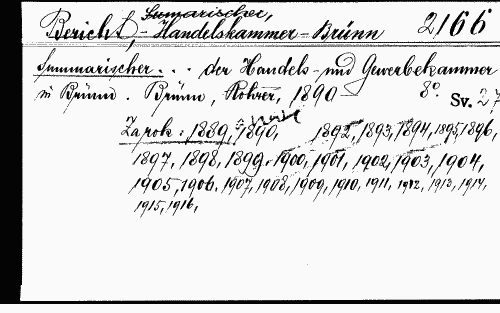 Sumarischer,
Bericht, - Handelskammer - Brünn 2166
Summarischer . . . der Handels- und Gewerbekammer
in Brünn. Brünn, Rohrer, 1890 - 8° Sv. 27
Za rok: 1889, 1890, 1892, 1893, 1894, 1895, 1896,
1897, 1898, 1899, 1900, 1901, 1902, 1903, 1904,
1905, 1906, 1907, 1908, 1909, 1910, 1911, 1912, 1913, 1914,
1915, 1916,